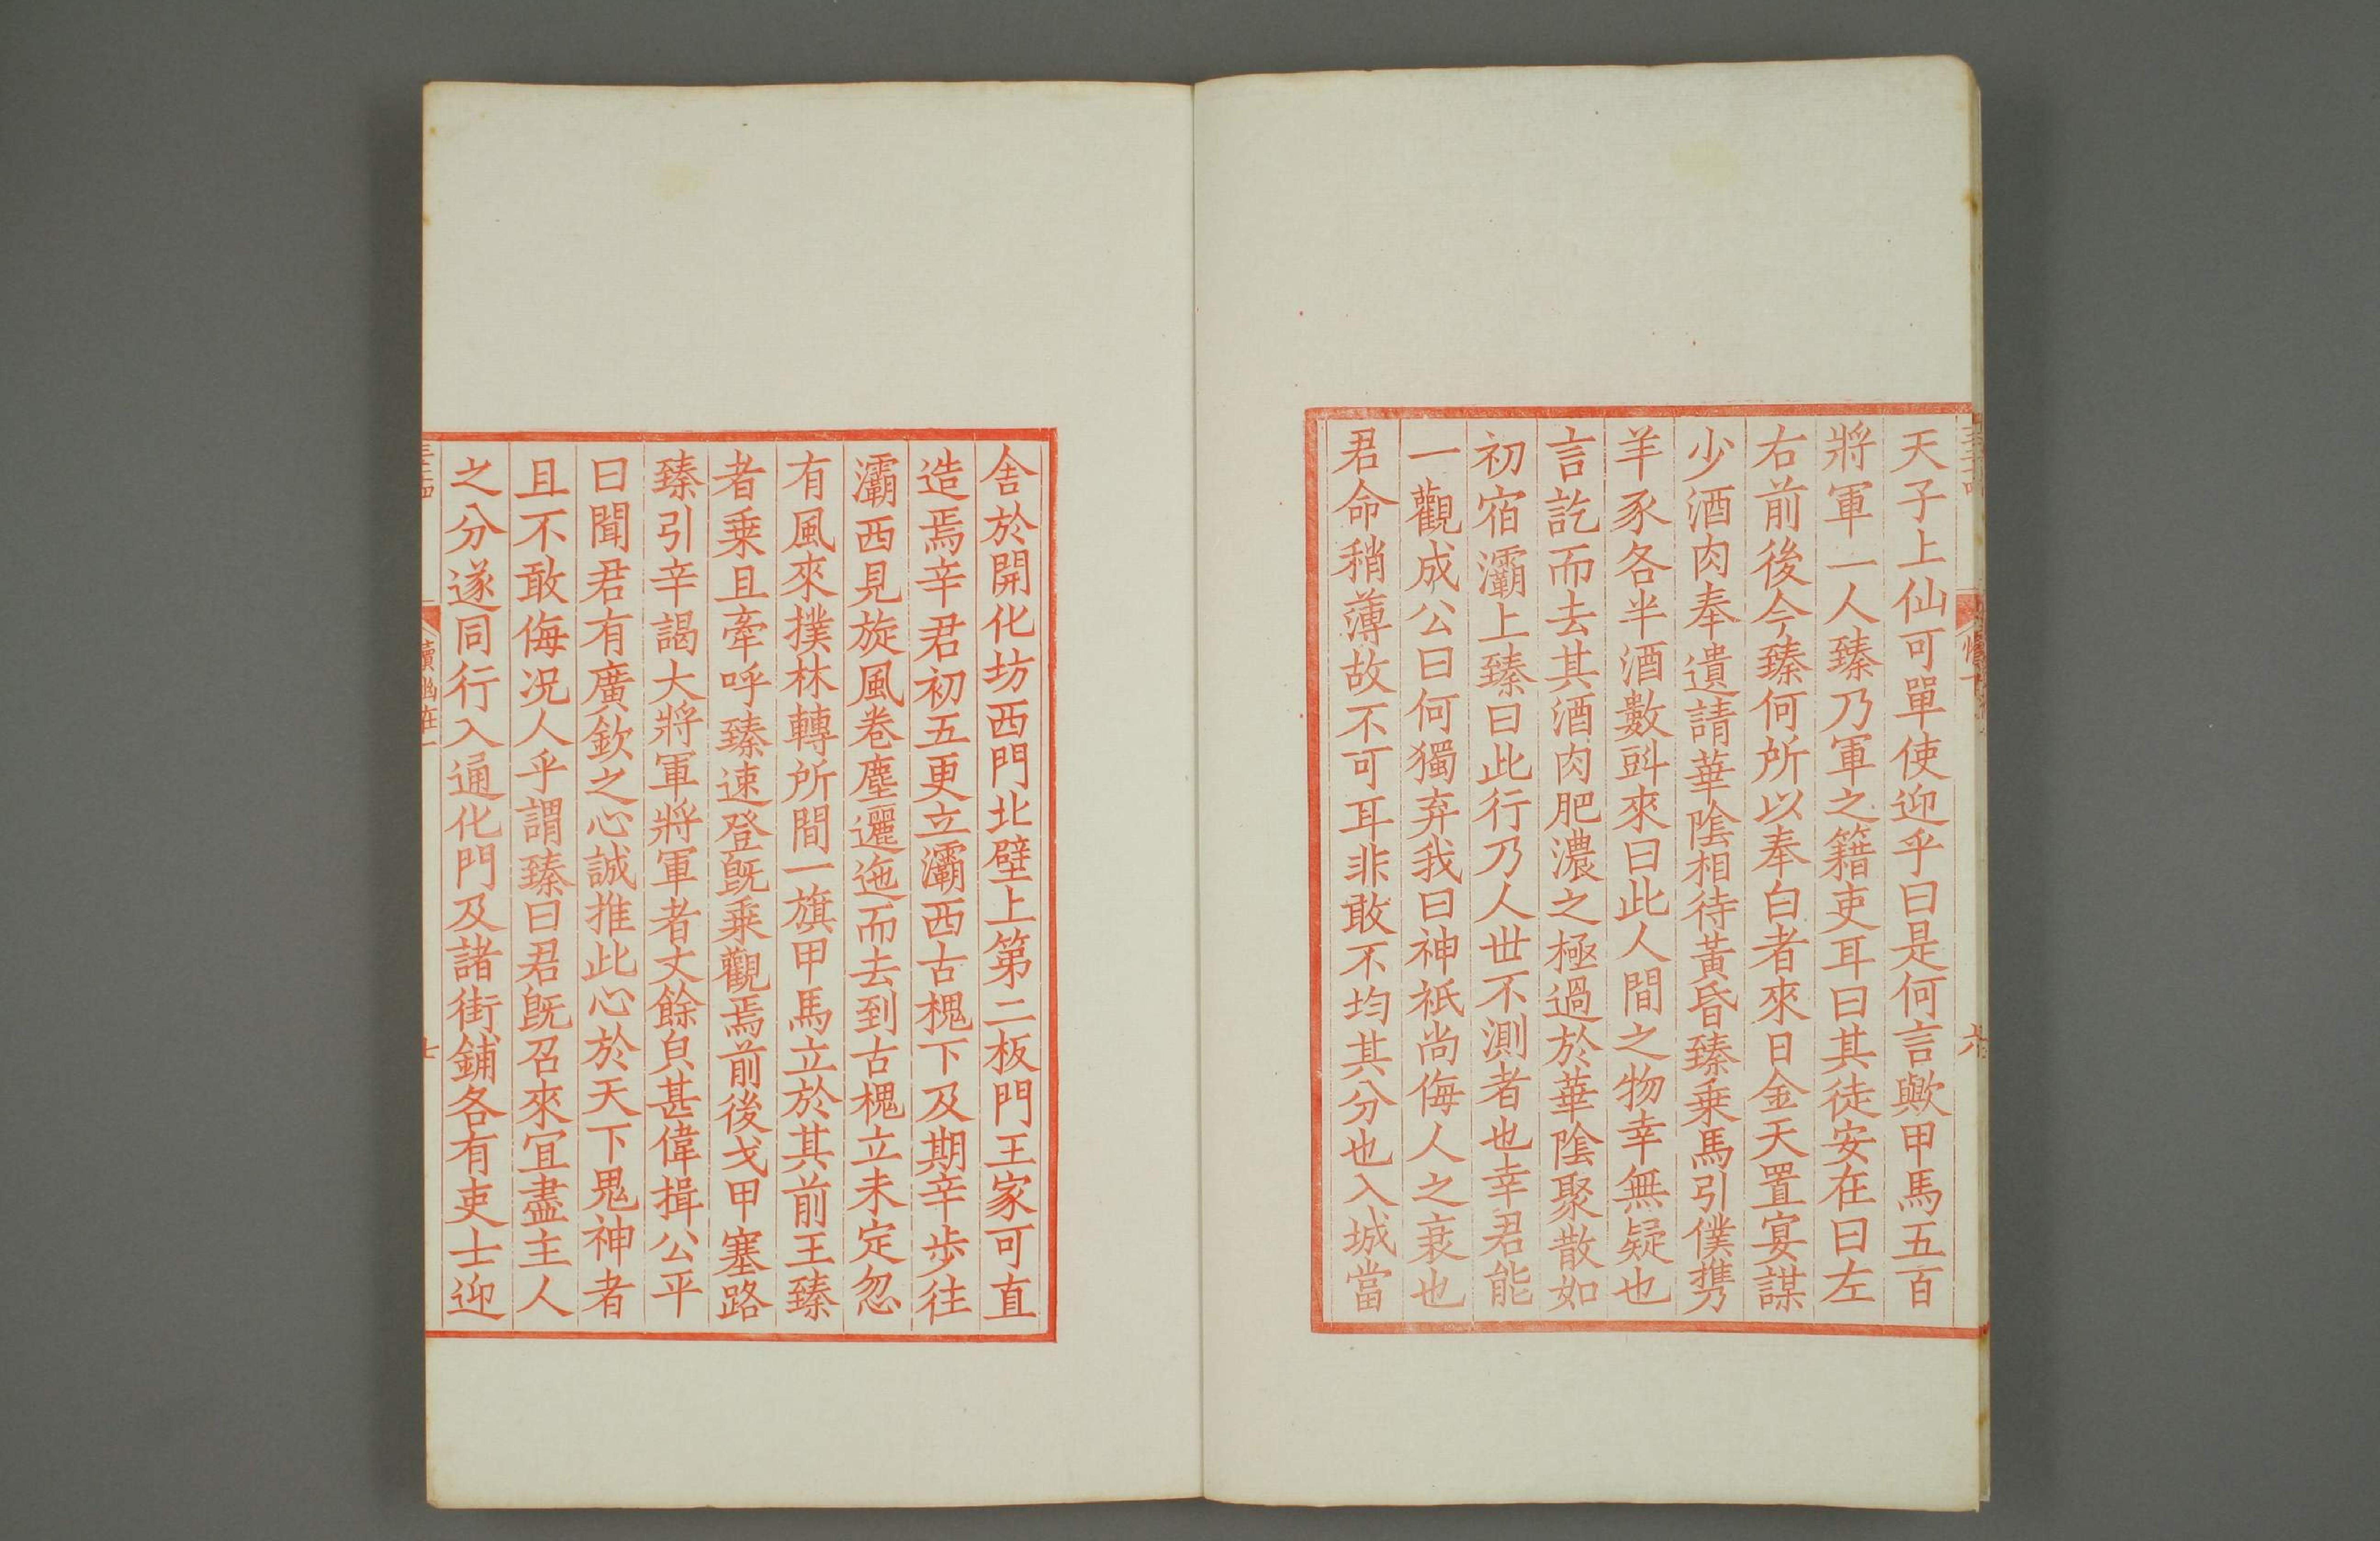 天子上仙可單使迎乎曰是何言歟甲馬五百
將軍一人臻乃軍之籍吏耳曰其徒安在曰左
右前後今臻何所以奉白者來日金天置宴謀
少酒肉奉遺請華陰相待黃昏臻乗馬引僕携
羊豕各半酒數㪷來曰此人間之物幸無疑也
言訖而去其酒肉肥濃之極過於華陰聚散如
初宿灞上臻曰此行乃人世不測者也幸君能
一觀成公曰何獨弃我曰神祇尚侮人之衰也
君命稍薄故不可耳非敢不均其分也入城當
舍於開化坊西門北壁上第二板門王家可直
造焉辛君初五更立灞西古槐下及期辛步往
灞西見旋風卷塵邐迤而去到古槐立未定忽
有風來撲林轉所間一旗甲馬立於其前王臻
者乗且牽呼臻速登旣乗觀焉前後戈甲塞路
臻引辛謁大將軍將軍者丈餘㒵甚偉揖公平
曰聞君有廣欽之心誠推此心於天下鬼神者
且不敢侮況人乎謂臻曰君旣召來宜盡主人
之分遂同行入通化門及諸街鋪各有吏士迎